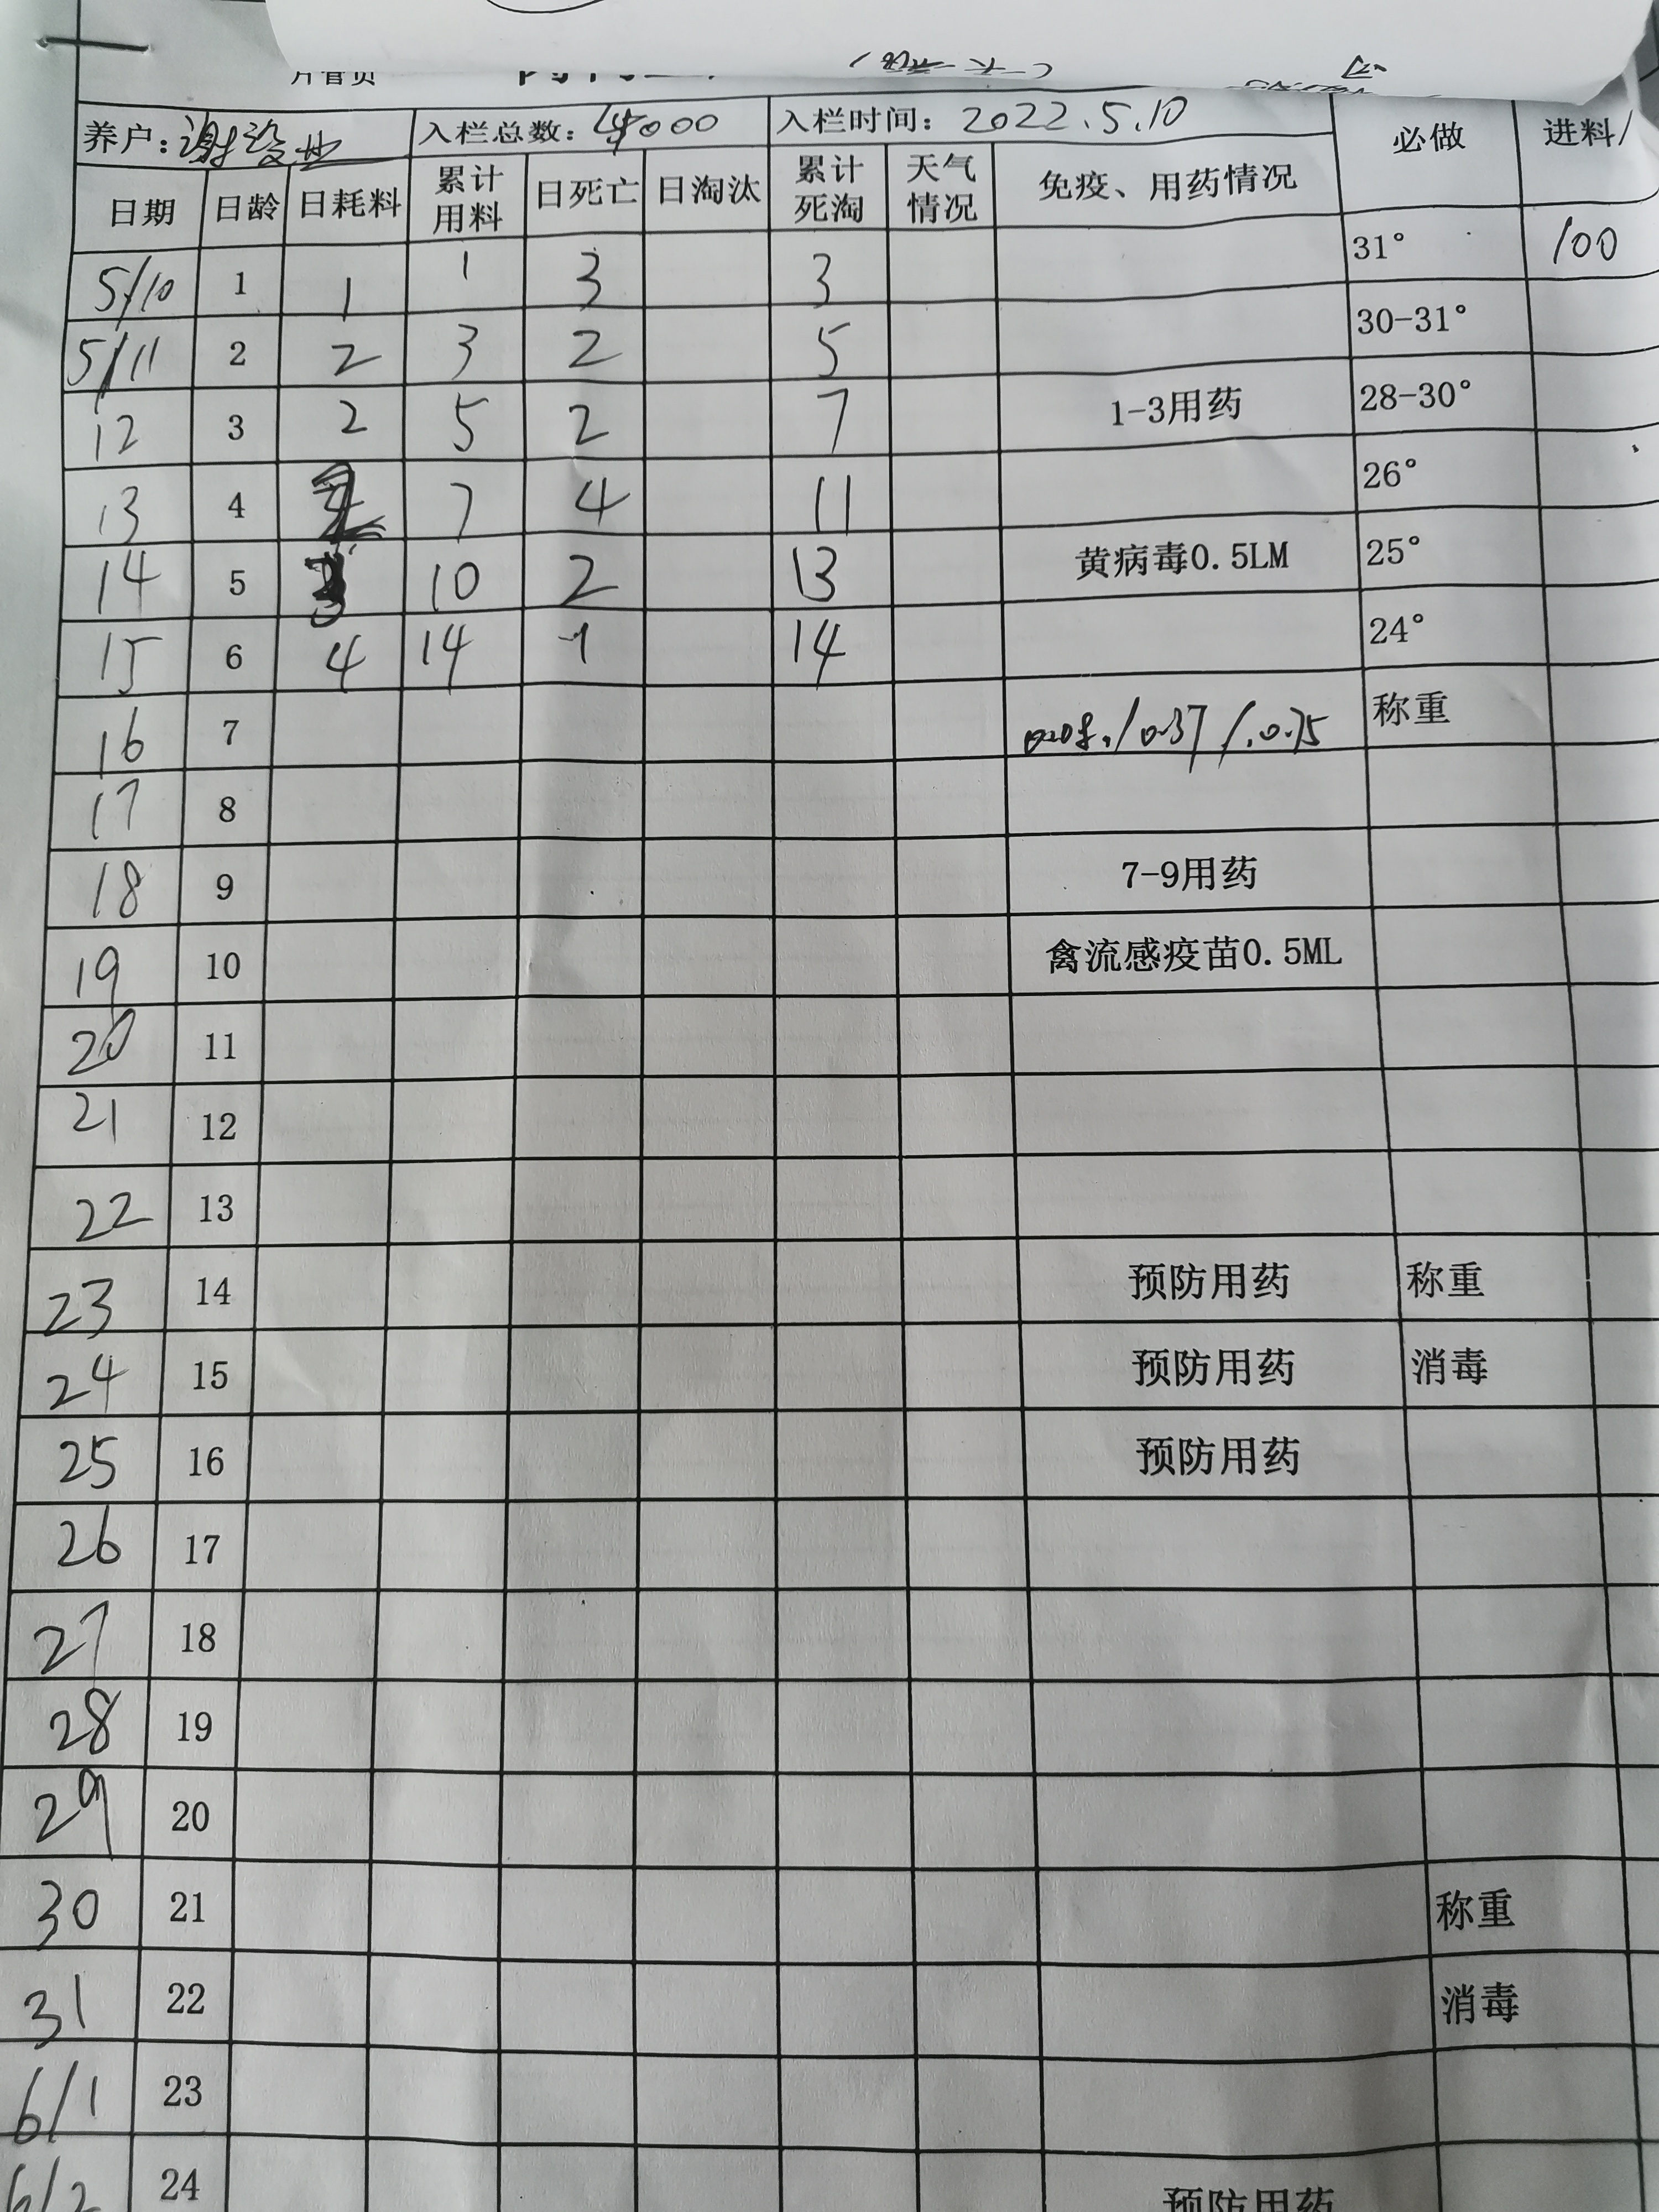 养户：谢 入栏总数：4000 入栏时间：2022.5.10 必做 进料/
日期 日龄 日耗料 累计用料 日死亡 日淘汰 累计死淘 天气情况 免疫、用药情况
5/10 1 1 1 3 3 31° 100
5/11 2 2 3 2 5 30-31°
12 3 2 5 2 7 1-3用药 28-30°
13 4 2 7 4 11 26°
14 5 3 10 2 13 黄病毒0.5LM 25°
15 6 4 14 1 14 24°
16 7 /0.37/ 0.75 称重
17 8
18 9 7-9用药
19 10 禽流感疫苗0.5ML
20 11
21 12
22 13
23 14 预防用药 称重
24 15 预防用药 消毒
25 16 预防用药
26 17
27 18
28 19
29 20
30 21 称重
31 22 消毒
6/1 23
6/2 24 预防用药